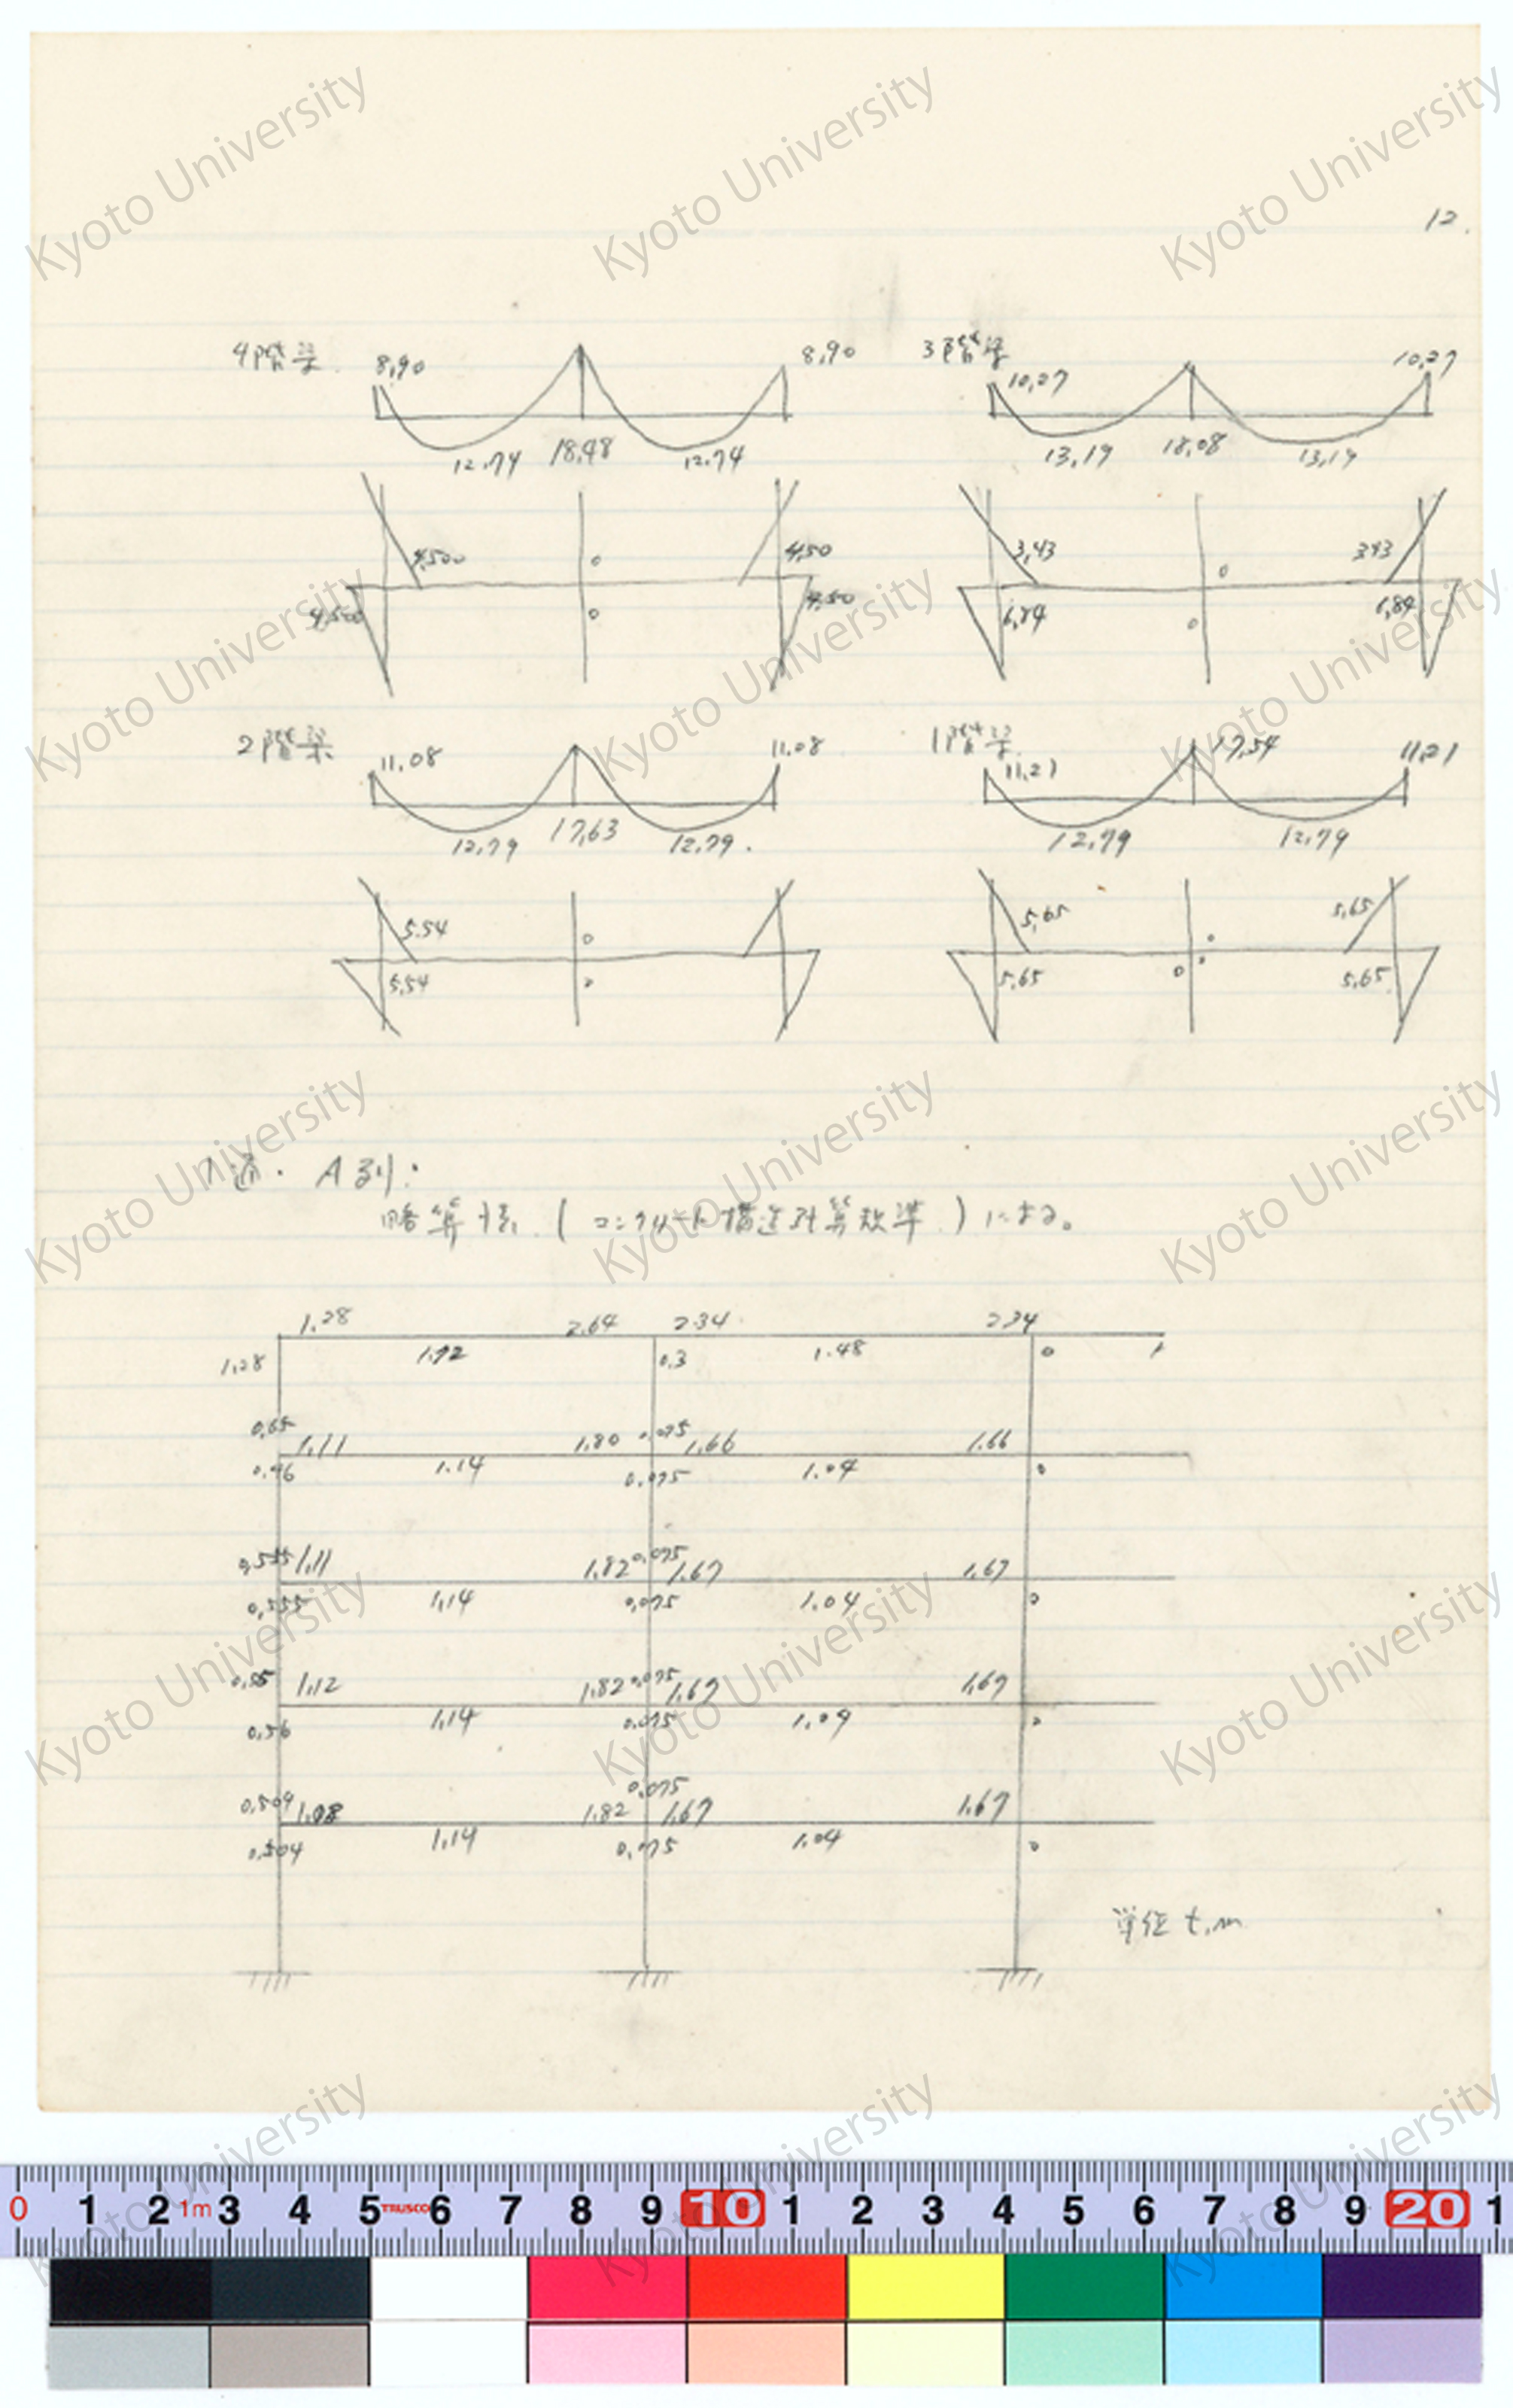 12.
4階梁 8.90 8.90
12.74 18.48 12.74
4.500 0 4.50
4.500 0 4.50
3階梁 10.27 10.27
13.19 18.08 13.19
3.43 0 3.43
6.84 0 6.84
2階梁 11.08 11.08
12.79 17.63 12.79.
5.54 0
5.54 0
1階梁 11.21 17.54 11.21
12.79 12.79
5.65 0 5.65
5.65 0 5.65
1通・A列:
略算法 (コンクリート構造計算規準) による。
1.28 2.64 2.34 2.34
1.28 1.72 0.3 1.48 0
0.65 1.11 1.80 0.075 1.66 1.66
0.46 1.14 0.075 1.04 0
0.555 1.11 1.82 0.075 1.67 1.67
0.555 1.14 0.075 1.04 0
1.12 1.82 0.075 1.67 1.67
0.56 1.14 0.075 1.04 0
0.075
0.504 1.08 1.82 1.67 1.67
0.504 1.14 0.075 1.04 0
単位 t.m
Kyoto University
0 1 2 1m 3 4 5 TRUSCO 6 7 8 9 10 1 2 3 4 5 6 7 8 9 20 1